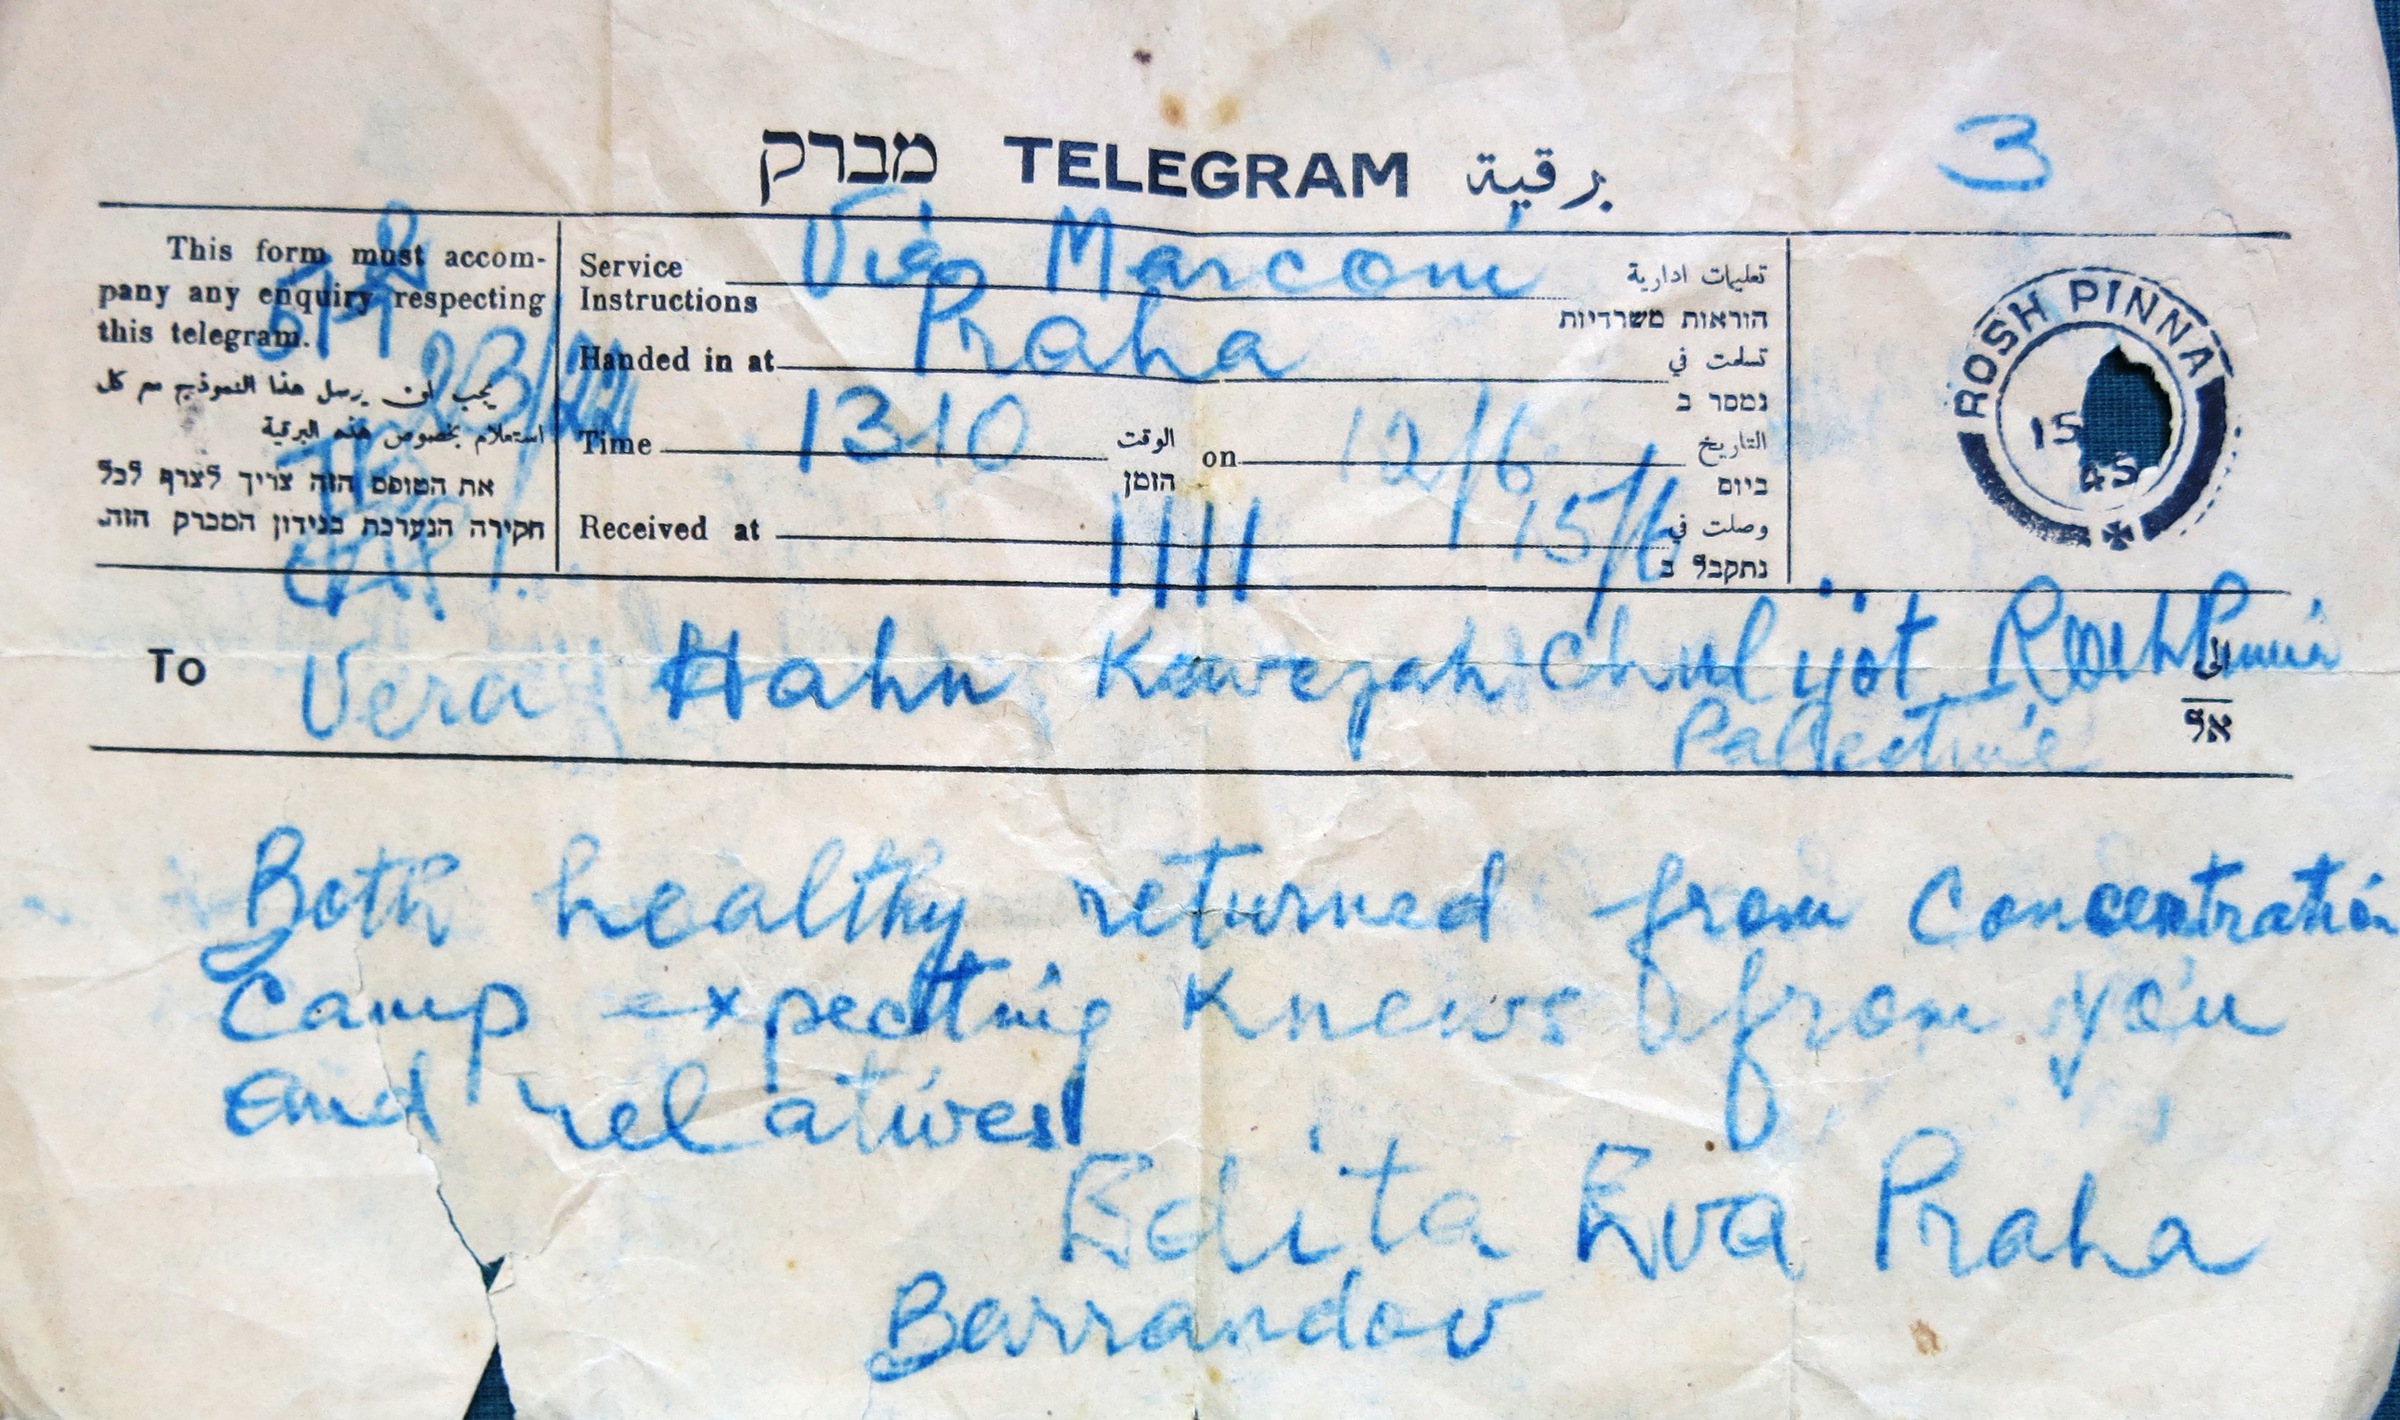 מברק TELEGRAM برقية
3
This form must accom-
pany any enquiry respecting
this telegram.
يجب ان يرسل هذا النموذج مع كل
استعلام بخصوص هذه البرقية
את הטופס הזה צריך לצרף לכל
חקירה הנערכת בנידון המברק הזה.
23/22
Service
Instructions
Via Marconi
تعليمات ادارية
הוראות משרדיות
Handed in at Praha تسلمت في
נמסר ב
Time 1310 الوقت on 12/6 التاريخ
הזמן ביום
Received at 15/6 وصلت في
נתקבל ב
ROSH PINNA
15
45
To Vera Hahn Kewezah Chuliyot Rosh Pinna الى
Palestine אל
Both healthy returned from Concentration
Camp expecting Knews from you
end relatives
Edita Eva Praha
Barrandov